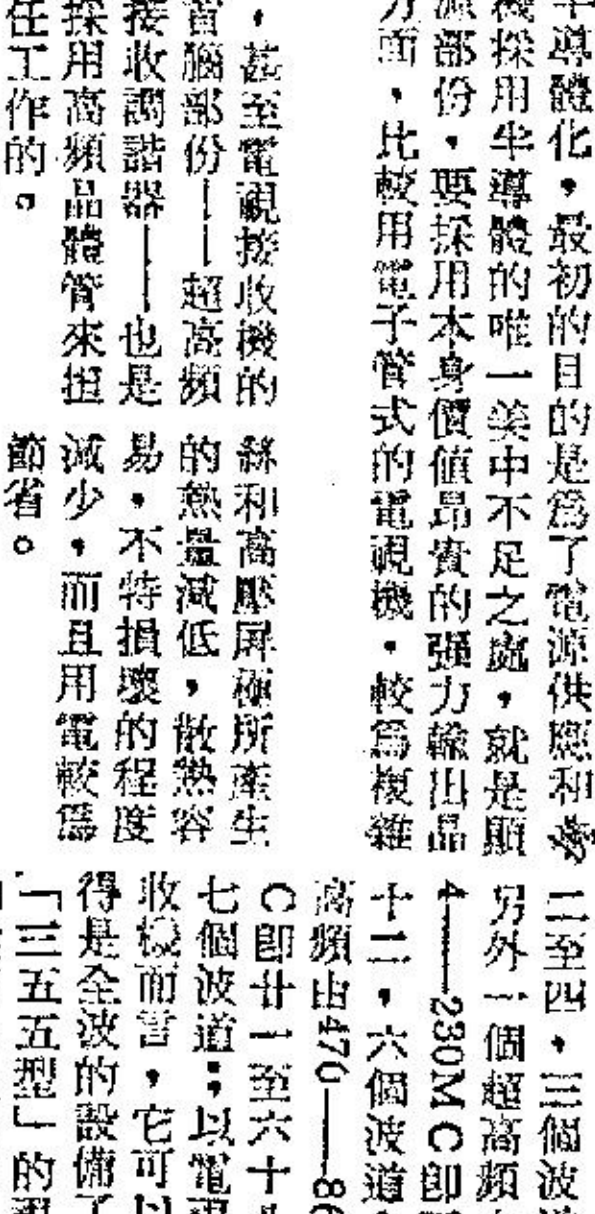 半導體化，最初的目的是爲了電源供應和
機採用半導體的唯一美中不足之處，就是顯
源部份，要採用本身價值昂貴的强力輸出晶
方面，比較用電子管式的電視機，較爲複雜
，甚至電視接收機的
首腦部份——超高頻
接收調諧器——也是
採用高頻晶體管來担
任工作的。
絲和高壓屏極所產生
的熱量減低，散熱容
易，不特損壞的程度
減少，而且用電較爲
節省。
二至四，三個波
另外一個超高頻
4——230MC卽
十二，六個波道
高頻由470——86
C卽廿一至六十
七個波道；以電視
收機而言，它可以
得是全波的設備了
「三五五型」的